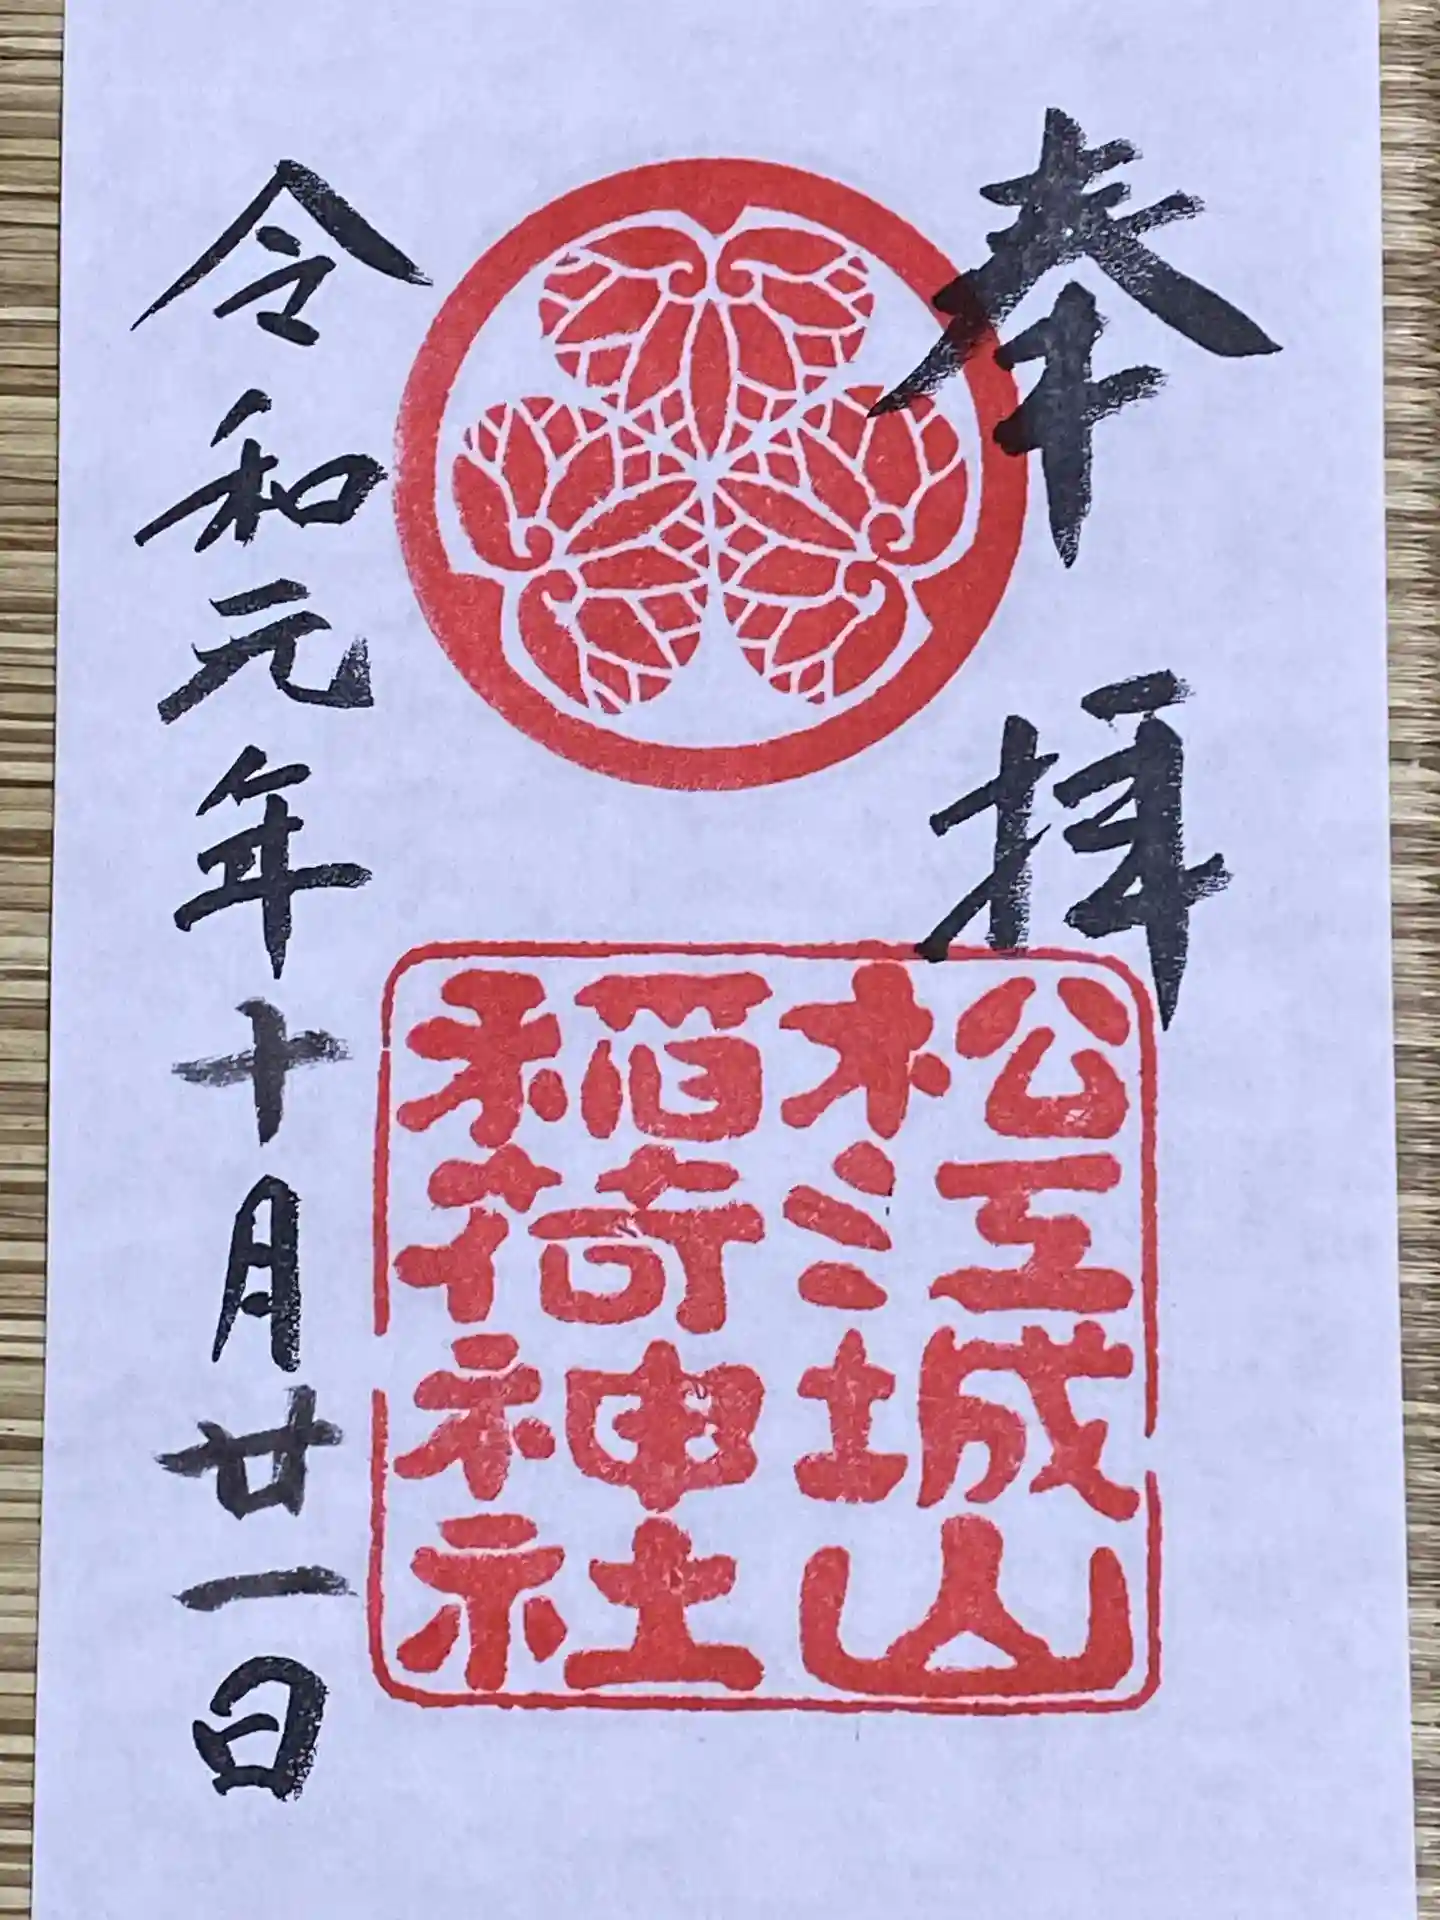 奉拝
松江城山
稲荷神社
令和元年十月廿一日